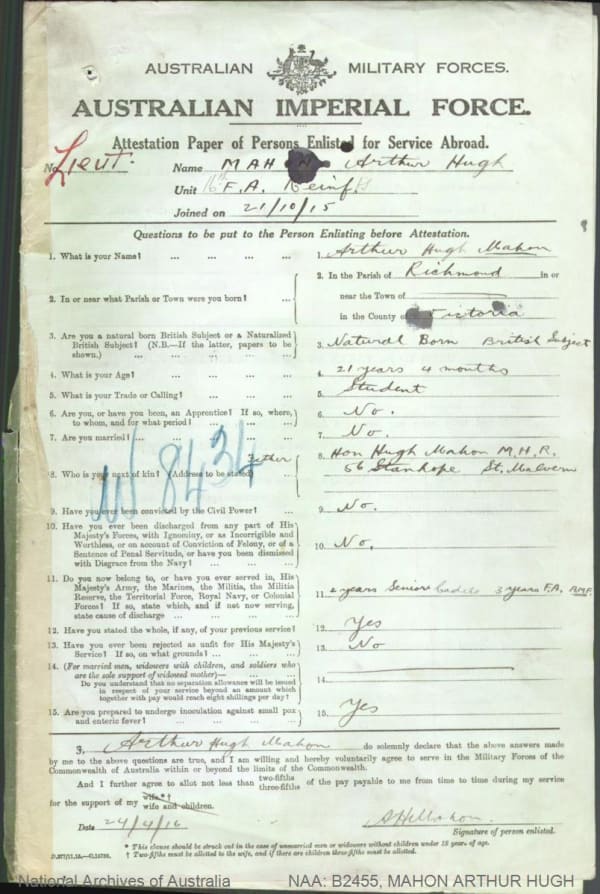 AUSTRALIAN MILITARY FORCES.
AUSTRALIAN IMPERIAL FORCE.
Attestation Paper of Persons Enlisted for Service Abroad.
No. Lieut. Name MAHON Arthur Hugh
Unit 16th F.A. Reinfts
Joined on 21/10/15
Questions to be put to the Person Enlisting before Attestation.
1. What is your Name? ... ... ... ... 1. Arthur Hugh Mahon
2. In or near what Parish or Town were you born? ... 2. In the Parish of Richmond in or
near the Town of
in the County of Victoria
3. Are you a natural born British Subject or a Naturalized British Subject? (N.B.—If the latter, papers to be shown.) ... ... ... ... 3. Natural Born British Subject
4. What is your Age? ... ... ... ... 4. 21 years 4 months
5. What is your Trade or Calling? ... ... ... 5. Student
6. Are you, or have you been, an Apprentice? If so, where, to whom, and for what period? ... ... ... 6. No.
7. Are you married? ... ... ... ... 7. No.
8. Who is your next of kin? (Address to be stated) Father 8. Hon Hugh Mahon M.H.R.
56 Stanhope St. Malvern
W 8434
9. Have you ever been convicted by the Civil Power? ... 9. No.
10. Have you ever been discharged from any part of His Majesty's Forces, with Ignominy, or as Incorrigible and Worthless, or on account of Conviction of Felony, or of a Sentence of Penal Servitude, or have you been dismissed with Disgrace from the Navy? ... ... ... 10. No.
11. Do you now belong to, or have you ever served in, His Majesty's Army, the Marines, the Militia, the Militia Reserve, the Territorial Force, Royal Navy, or Colonial Forces? If so, state which, and if not now serving, state cause of discharge ... ... ... 11. 2 years Senior Cadets 3 years F.A. A.M.F.
12. Have you stated the whole, if any, of your previous service? 12. Yes
13. Have you ever been rejected as unfit for His Majesty's Service? If so, on what grounds? ... ... ... 13. No
14. (For married men, widowers with children, and soldiers who are the sole support of widowed mother)—
Do you understand that no separation allowance will be issued in respect of your service beyond an amount which together with pay would reach eight shillings per day? 14.
15. Are you prepared to undergo inoculation against small pox and enteric fever? ... ... ... ... 15. Yes
I, Arthur Hugh Mahon do solemnly declare that the above answers made
by me to the above questions are true, and I am willing and hereby voluntarily agree to serve in the Military Forces of the
Commonwealth of Australia within or beyond the limits of the Commonwealth.
And I further agree to allot not less than two-fifths three-fifths of the pay payable to me from time to time during my service
for the support of my wife*† wife and children.
Date 24/4/16 AHMahon.
Signature of person enlisted.
* This clause should be struck out in the case of unmarried men or widowers without children under 18 years of age.
† Two-fifths must be allotted to the wife, and if there are children three-fifths must be allotted.
National Archives of Australia NAA: B2455, MAHON ARTHUR HUGH